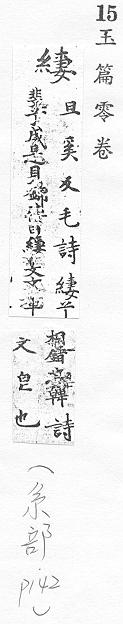 15玉篇零卷
緀
且奚反毛詩緀兮
斐兮成是貝錦傳曰緀斐文章
相錯也韓詩
文皃也
(糸部 p142)